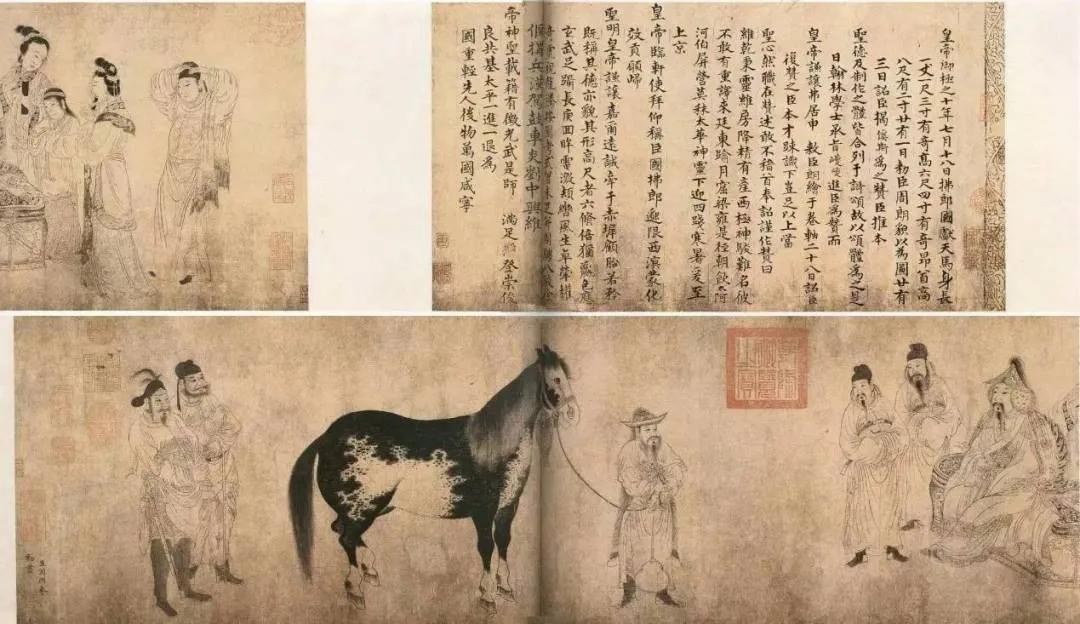 皇帝御極之十年七月十八日拂郎國獻天馬身長
一丈一尺三寸有奇高六尺四寸有奇昂首高
八尺有二寸廿有一日勑臣周朗貌以為圖廿有
三日詔臣揭傒斯為之贊臣推本
聖德及制作之體皆合列于詩頌故以頌體為之是
日翰林學士承旨巙進臣為贊而
皇帝謙讓弗居申勑臣朗繪于卷軸二十八日詔臣
復贊之臣本才疎識下豈足以上當
聖心然職在其述敢不稽首奉詔謹作贊曰
維乾秉靈維房降精有產西極神駿難名彼
不敢有重譯來廷東踰月窟梁雍是經朝飲大河
河伯屏營莫秣太華神靈下迎四踐寒暑爰至
上京
皇帝臨軒使拜仰稱臣國拂郎邈限西溟蒙化
效貢願歸
聖明皇帝謙讓嘉爾遠誠牽于赤墀顧瞻若矜
既稱其德亦貌其形高尺者六脩倍猶贏色應
玄武足躡長庚回眸電激頓轡風生卓犖權
兵漢駕鼓車炎劉中興維
帝神聖載籍有徵光武是師 滿足 登崇俊
良共基太平一進一退為
國重輕先人後物萬國咸寧